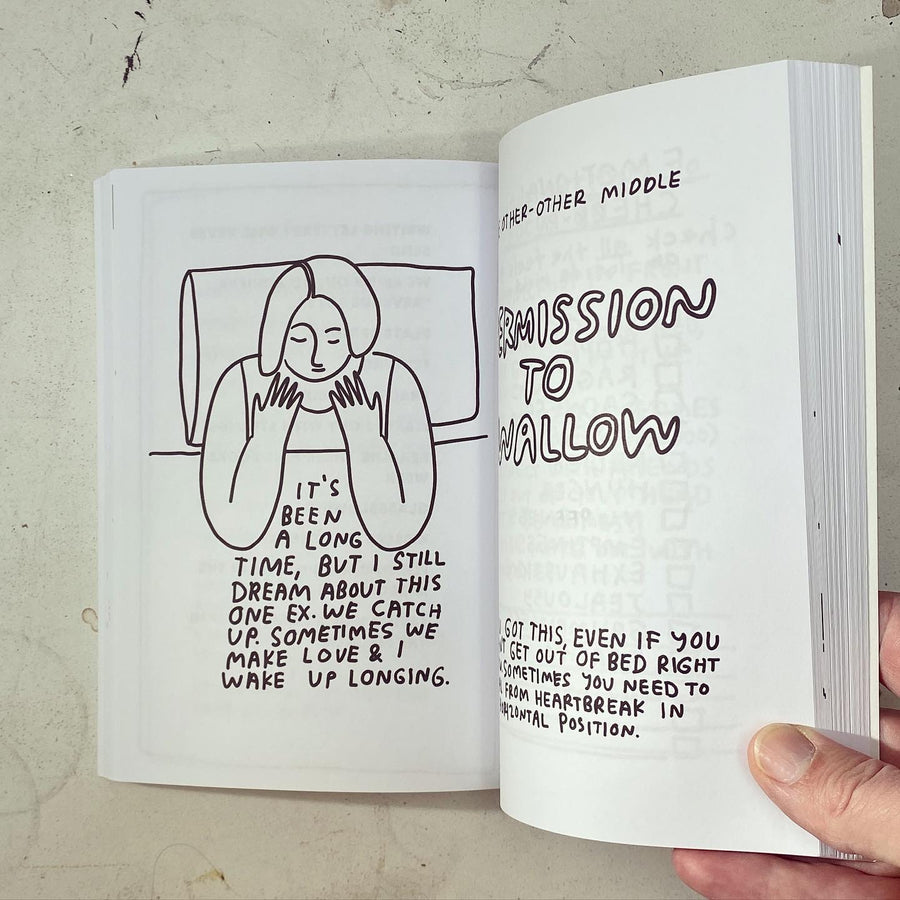 IT'S
BEEN
A LONG
TIME, BUT I STILL
DREAM ABOUT THIS
ONE EX. WE CATCH
UP. SOMETIMES WE
MAKE LOVE & I
WAKE UP LONGING.
OTHER-OTHER MIDDLE
ERMISSION
TO
WALLOW
GOT THIS, EVEN IF YOU
GET OUT OF BED RIGHT
SOMETIMES YOU NEED TO
FROM HEARTBREAK IN
POSITION.